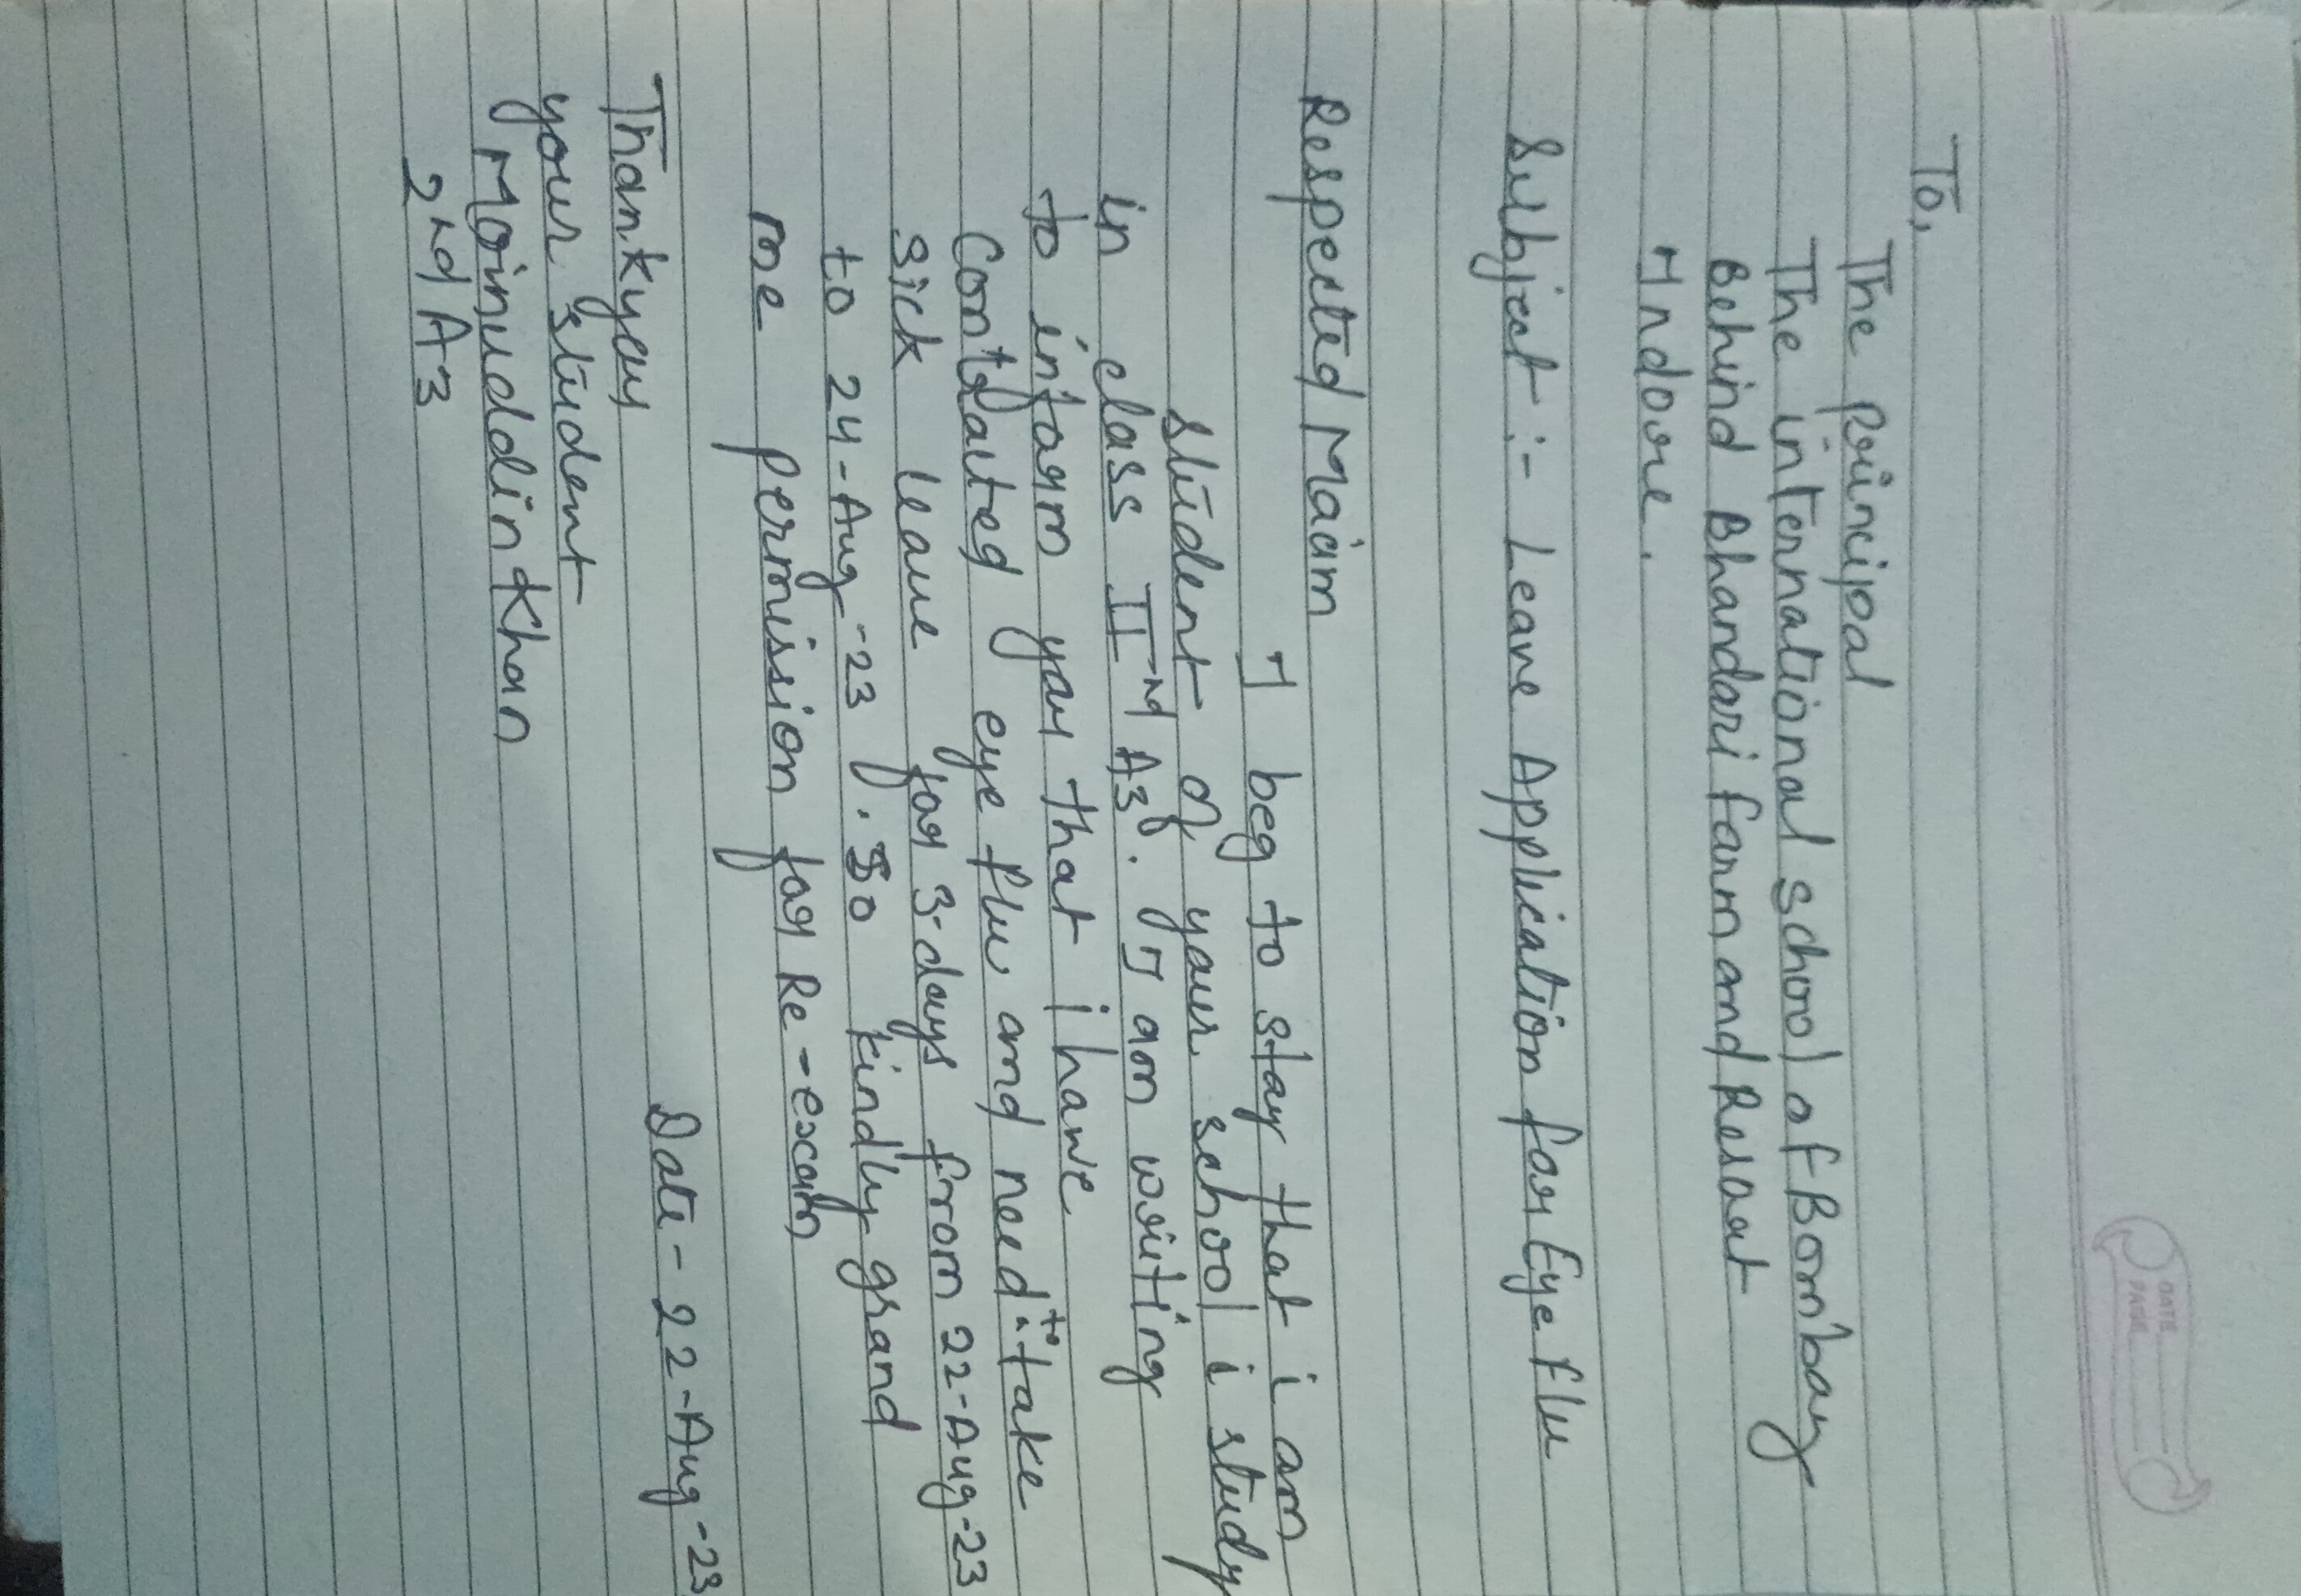 DATE
PAGE
To,
The principal
The international school of Bombay
Behind Bhandari farm and Resort
Indore.
Subject :- Leave Application for Eye flu
Respected Ma'am
I beg to stay that i am
student of your school i study
in class II nd A3. I am writing
to inform you that i have
Contracted eye flu and need to take
sick leave for 3-days from 22-Aug-23
to 24-Aug-23. So kindly grand
me permission for Re-exam
Date - 22-Aug-23
Thankyou
your student
Moinuddin Khan
2nd A3